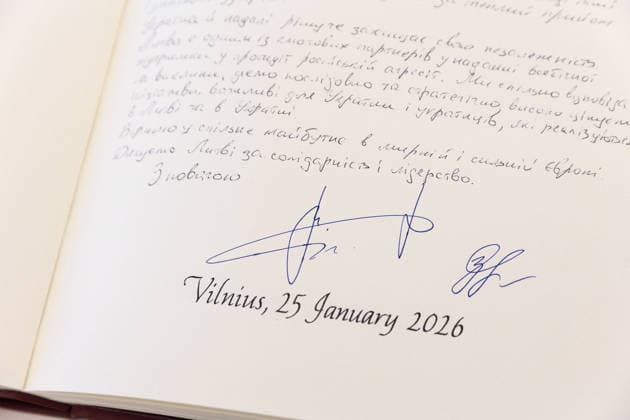 за теплий прийом
Україна й надалі рішуче захищає свою незалежність
Литва є одним із ключових партнерів у наданні всебічної
підтримки у протидії російській агресії. Ми спільно
виклики, діємо послідовно та стратегічно, високо цінуємо
важливі для України і українців, які реалізуються
в Литві та в Україні.
Віримо у спільне майбутнє в мирній і сильній Європі
Дякуємо Литві за солідарність і лідерство.
З повагою
Vilnius, 25 January 2026